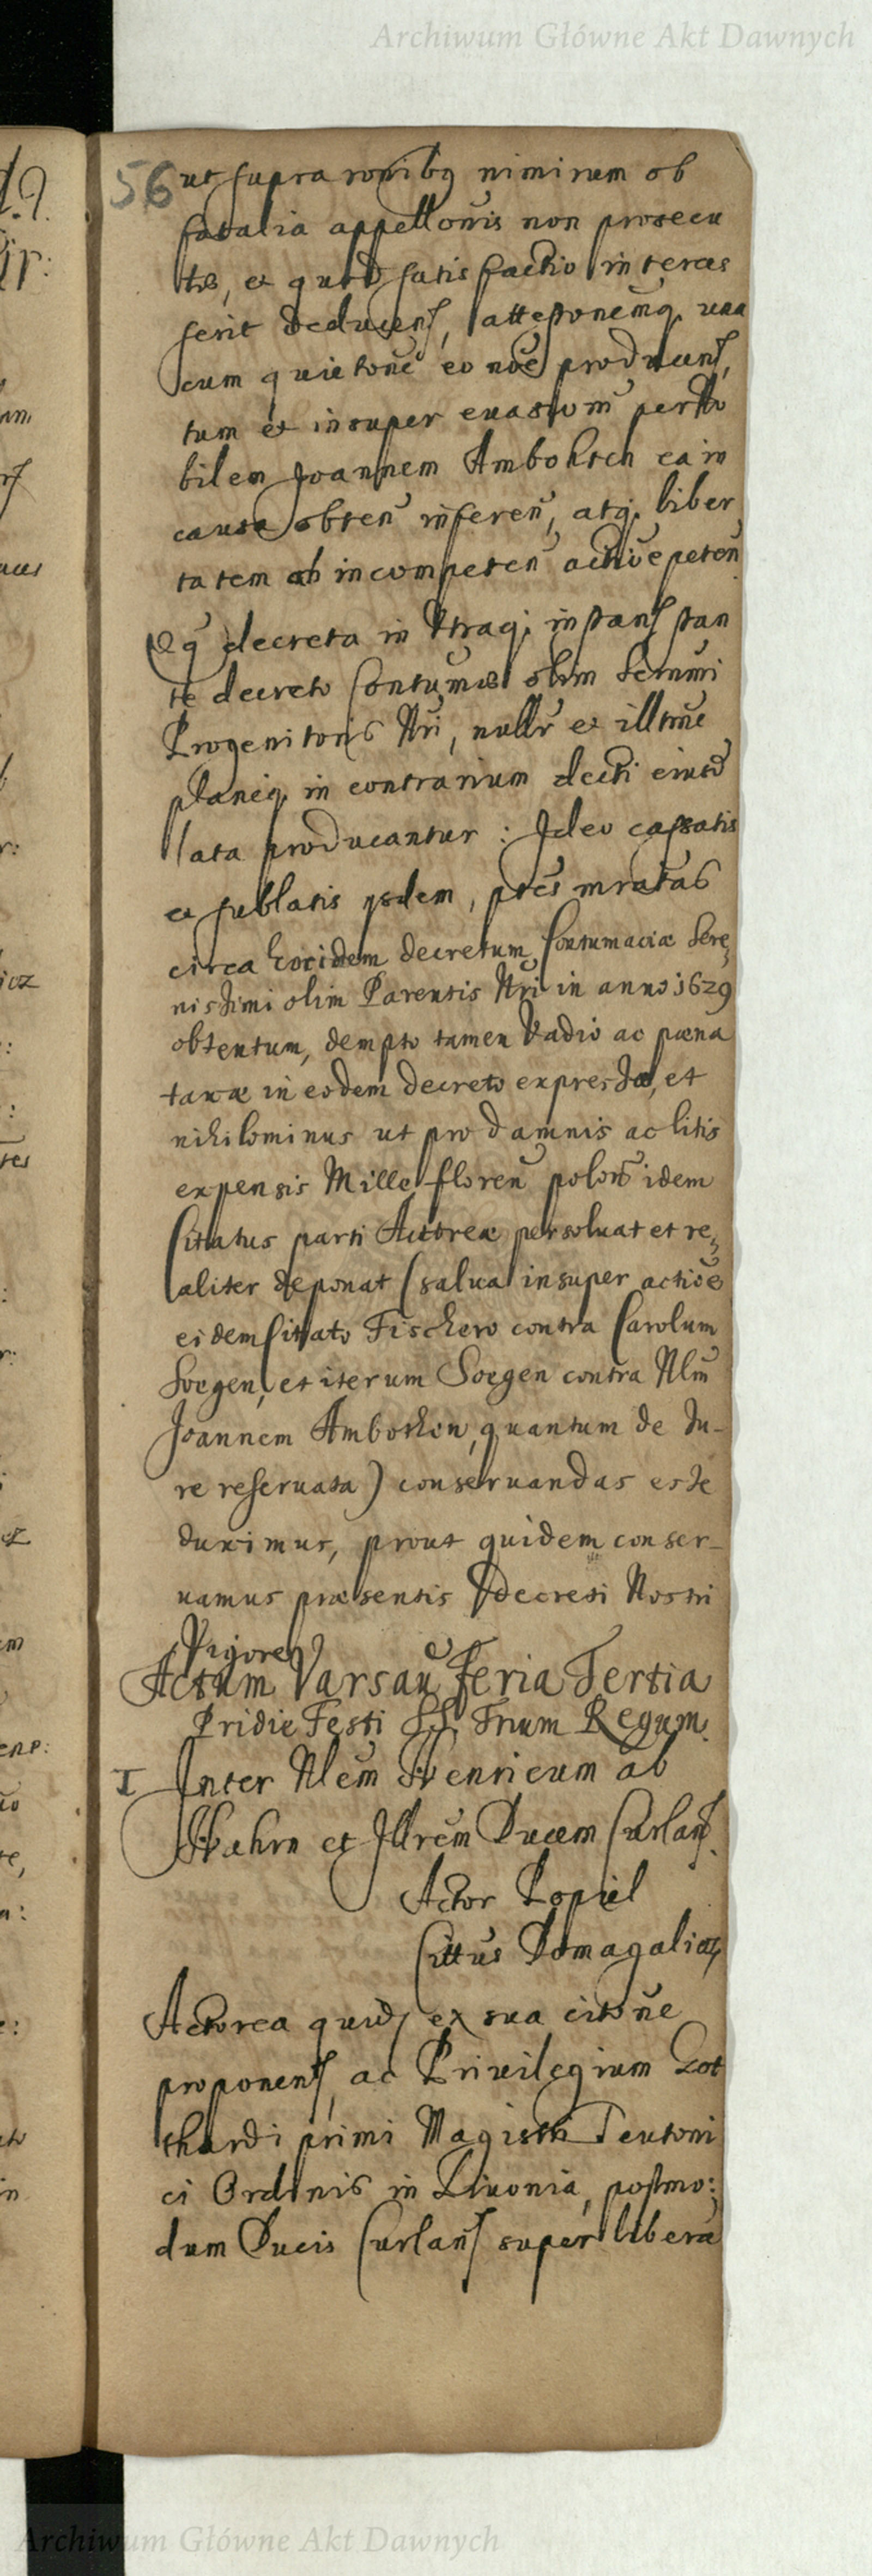 Archiwum Główne Akt Dawnych
56 ut supra ronibq nimirum ob
fatalia appellonis non prosecu
ta, et quod satis factio interces
serit deducens, attestonemq una
cum quietone eo noe producens,
tum et insuper evasivem per Nō
bilem Joannem Ambohten ea in
causa obten inferen, atq. liber
tatem ab incompeten actione peten
Qq decreta in Utraq. instans stan
te decreto Contumas olim Sernmi
Progenitoris Nri, nullr et illtme
planeq in contrarium decti eiusd
lata producantur : Ideo cassatis
et sublatis ysdem, ptes mratas
circa Eoridem decretum Contumaciæ Sere,
nissimi olim Parentis Nri in anno 1629
obtentum, dempto tamen Vadio ac pæna
taxæ in eodem decreto expressæ, et
nihilominus ut pro damnis ac litis
expensis Mille floren polon idem
Citatus parti Actoreæ persoluat et re,
aliter deponat (salua insuper actioe
eidem Citato Fischero contra Carolum
Soegen, et iterum Soegen contra Nlm
Joannem Ambothen, quantum de Ju-
re reseruata) conseruandas esse
duximus, prout quidem conser-
uamus præsentis decreti Nostri
Vigore
Actum Varsau Feria Tertia
Pridie Festi SS. Trium Regum.
I Inter Nlem Henricum ab
Hahrn et Illrem Ducem Curlans.
Actor Popiel
Cittus Domagalicz
Actorea quid ex sua citone
proponens, ac Priuilegium Got
thardi primi Magistri Teutoni
ci Ordinis in Liuonia, postmo:
dum Ducis Curlans super libera
Archiwum Główne Akt Dawnych